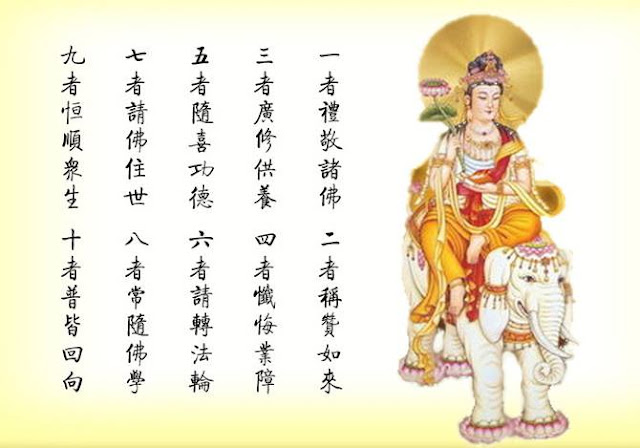 一者禮敬諸佛 二者稱贊如來
三者廣修供養 四者懺悔業障
五者隨喜功德 六者請轉法輪
七者請佛住世 八者常隨佛學
九者恒順眾生 十者普皆回向